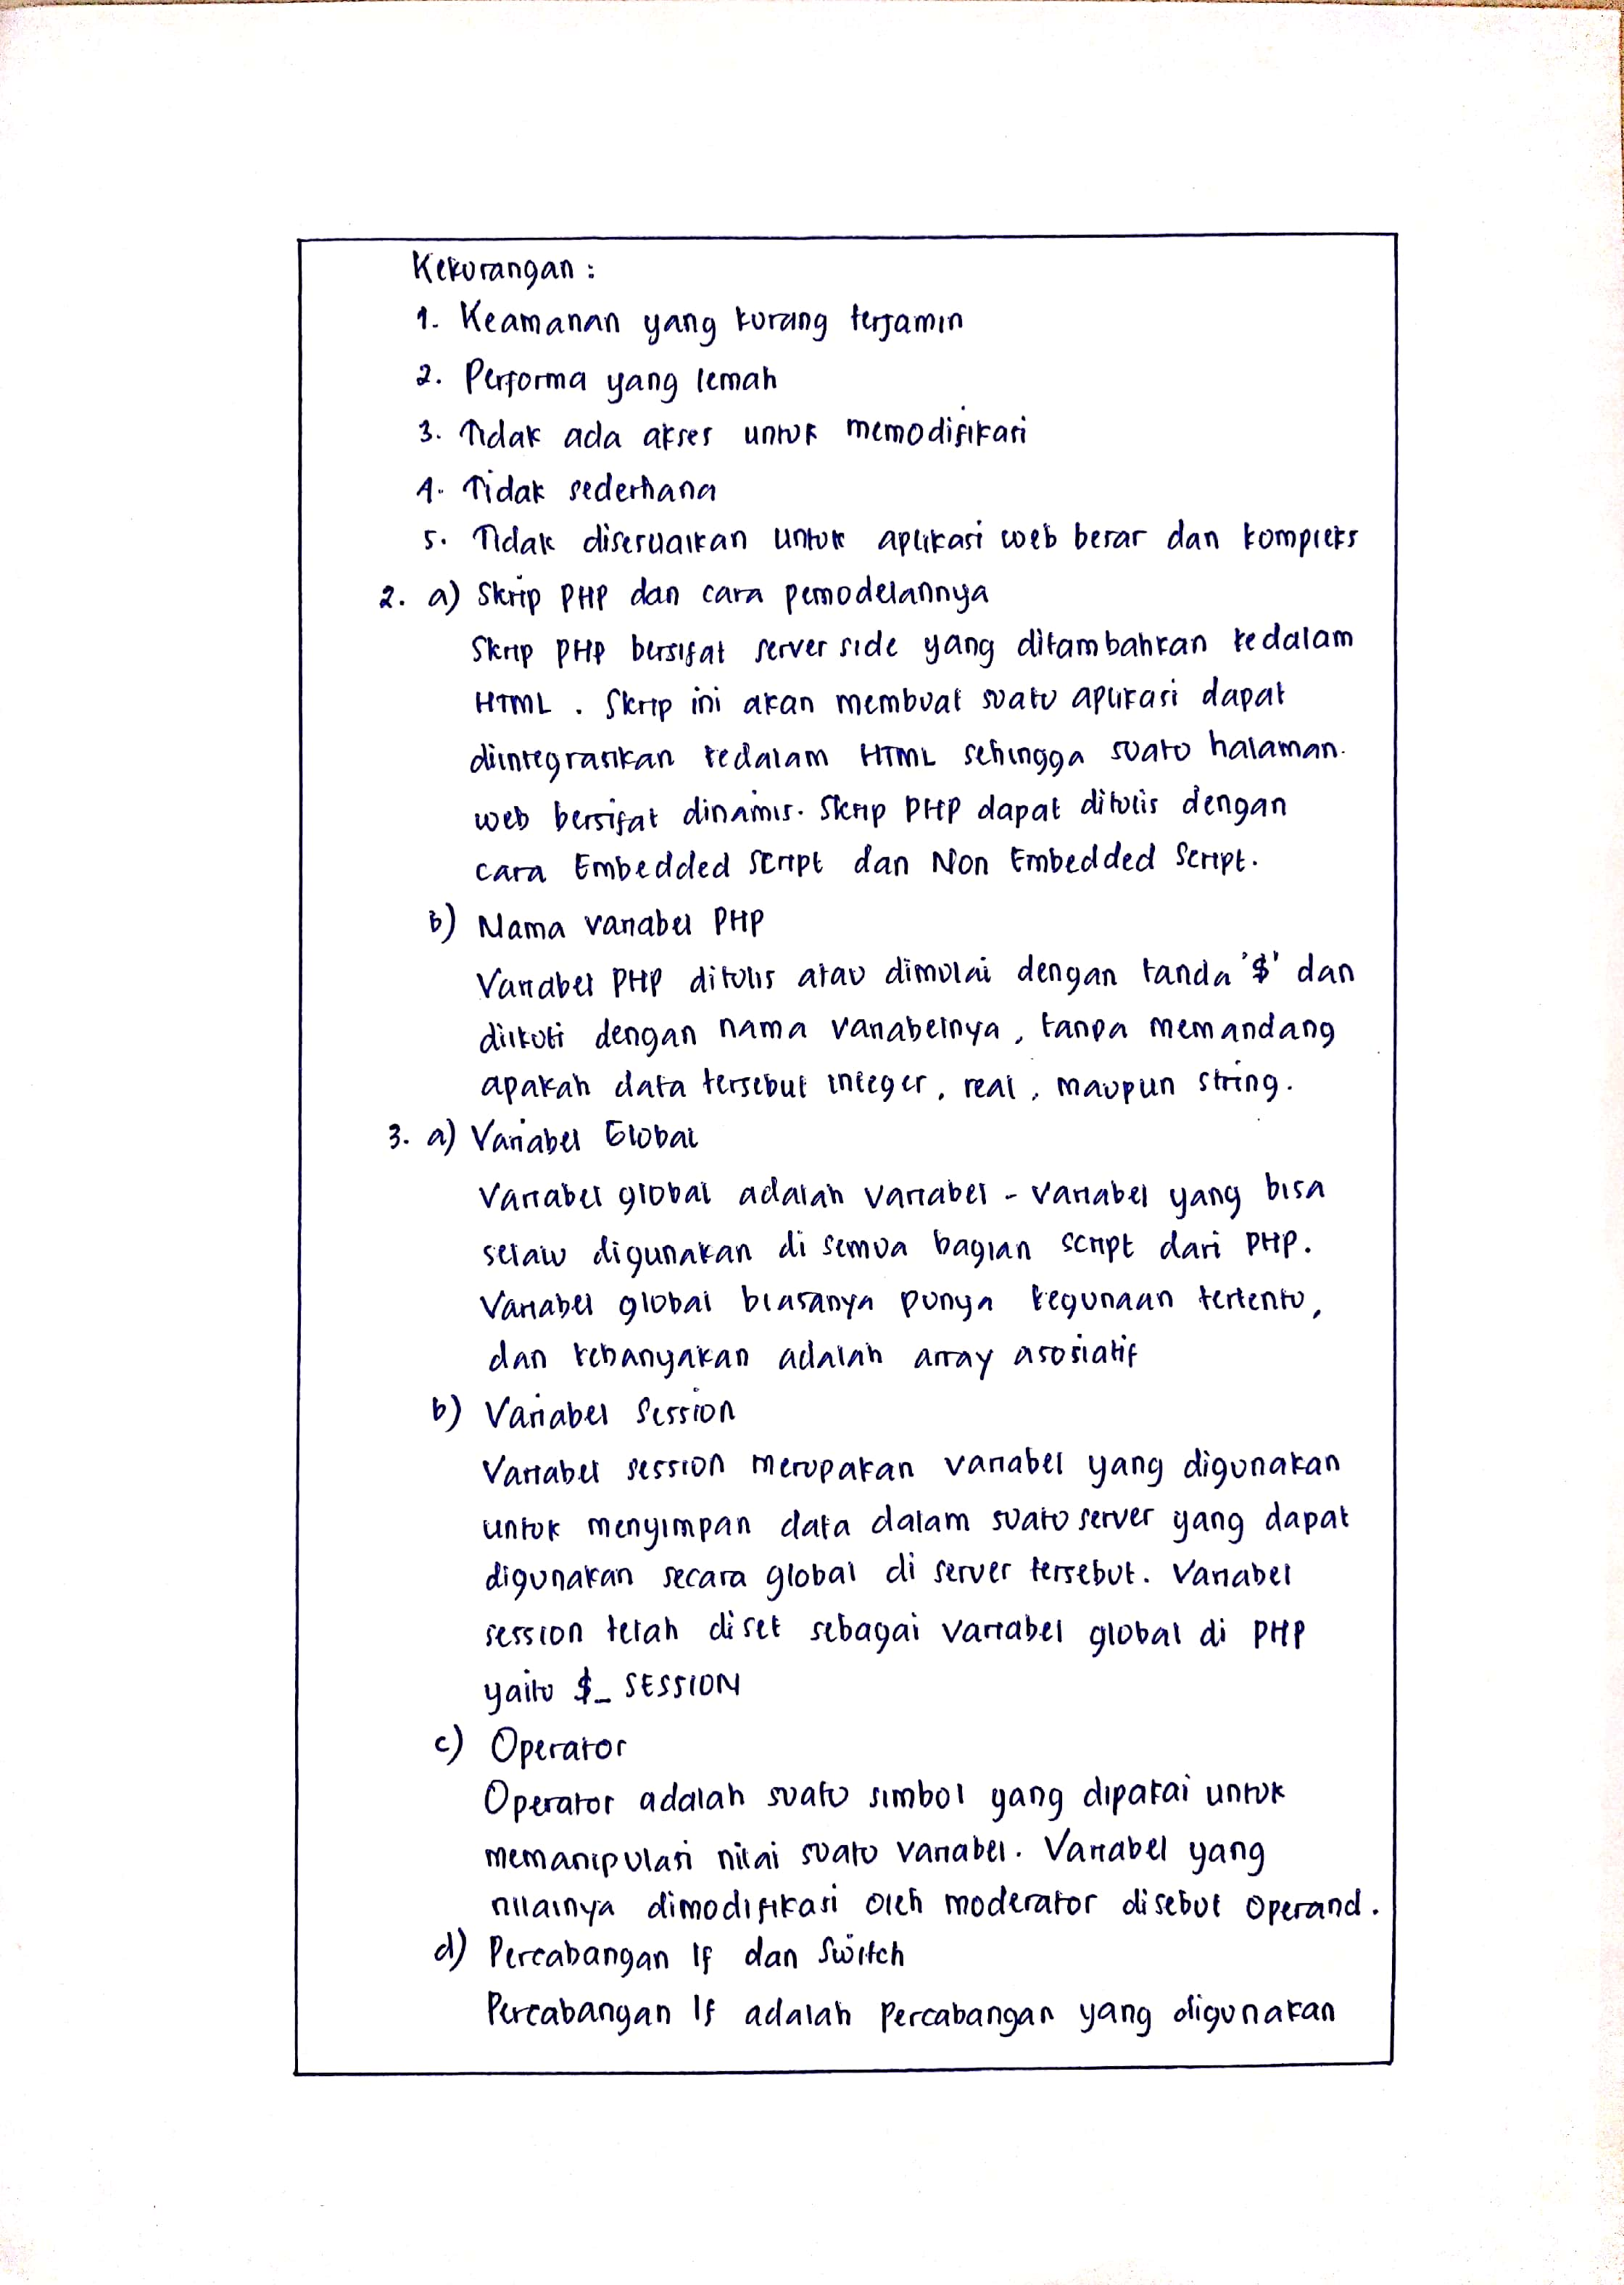 Kekurangan :
1. Keamanan yang kurang terjamin
2. Performa yang lemah
3. Tidak ada akses untuk memodifikasi
4. Tidak sederhana
5. Tidak disesuaikan untuk aplikasi web besar dan kompleks
2. a) Skrip PHP dan cara pemodelannya
Skrip PHP bersifat server side yang ditambahkan kedalam
HTML . Skrip ini akan membuat suatu aplikasi dapat
diintegrasikan kedalam HTML sehingga suatu halaman.
web bersifat dinamis. Skrip PHP dapat ditulis dengan
cara Embedded Script dan Non Embedded Script.
b) Nama variabel PHP
Variabel PHP ditulis atau dimulai dengan tanda '$' dan
diikuti dengan nama variabelnya, tanpa memandang
apakah data tersebut integer, real, maupun string.
3. a) Variabel Global
Variabel global adalah variabel - variabel yang bisa
selalu digunakan di semua bagian script dari PHP.
Variabel global biasanya punya kegunaan tertentu,
dan kebanyakan adalah array asosiatif
b) Variabel Session
Variabel session merupakan variabel yang digunakan
untuk menyimpan data dalam suatu server yang dapat
digunakan secara global di server tersebut. Variabel
session telah diset sebagai variabel global di PHP
yaitu $_SESSION
c) Operator
Operator adalah suatu simbol yang dipakai untuk
memanipulasi nilai suatu variabel. Variabel yang
nilainya dimodifikasi oleh moderator disebut operand.
d) Percabangan If dan Switch
Percabangan If adalah percabangan yang digunakan